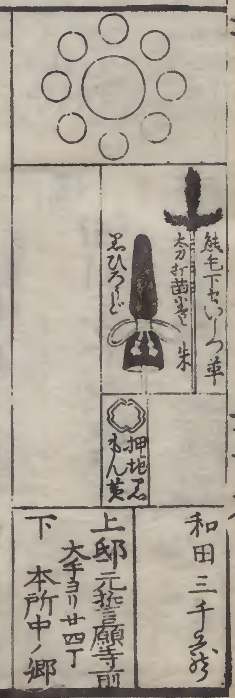 熊毛下せいしつ革
太刀打苗少さし 朱
黒ひろうど
押地黒
もん黄
和田三千
上邸元誓願寺前
大手ヨリ廿四丁
下 本所中ノ郷